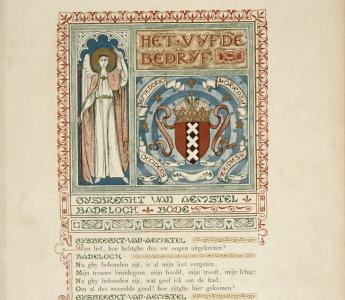 HET·VYFDE
BEDRYF.
GYSBREGHT VAN AEMSTEL
BADELOCH BODE
GYSBREGHT·VAN·AEMSTEL
Myn lief, hoe hebtghe dus uw oogen uitgekreten?
BADELOCH·
Nu ghy behouden zijt, is al mijn leet vergeten,
Mijn trouwe bruidegom, mijn hoofd, mijn troost, mijn schat:
Nu ghy behouden zijt, wat geef ick om de stad,
Om al der weerelds goed? hoe zijghe hier gekomen?
GYSBREGHT·VAN·AEMSTEL·